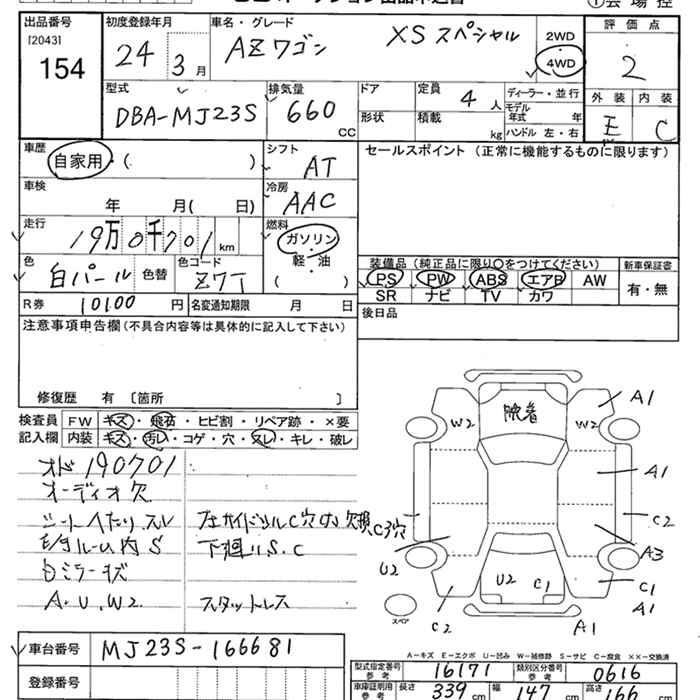 出品番号 初度登録年月 車名・グレード ①会場控
[2043] 評価点
154 24 3月 AZワゴン XSスペシャル 2WD
4WD 2
型式 排気量 ドア 定員 ディーラー・並行 外装 内装
DBA-MJ23S 660 CC 4人 モデル年式 年 E C
形状 積載 kg ハンドル 左・右
車歴 シフト セールスポイント (正常に機能するものに限ります)
自家用・( ) AT
車検 冷房
年 月( 日) AAC
走行 燃料
19万0千701km ガソリン・軽・油
色 色替 色コード ( ) 装備品 (純正品に限り〇をつけてください) 新車保証書
白パール Z7T PS PW ABS エアB AW 有・無
R券 10100円 名変通知期限 月 日 SR ナビ TV カワ
注意事項申告欄 (不具合内容等は具体的に記入して下さい) 後日品
修復歴 有 [箇所 ]
検査員 FW キズ・飛石・ヒビ割・リペア跡・×要
記入欄 内装 キズ・汚レ・コゲ・穴・スレ・キレ・破レ
オド190701
オーディオ欠
シートヘたり.スレ
ルーム内S 下廻りS.C
ミラーキズ
A.U.W2 スタットレス
A1
W2 W2
A1
C2
A3
U2
U2 C1 C1
A1
C2 A1
スペア
車台番号 MJ23S-166681
A-キズ E-エクボ U-凹み W-補修跡 S-サビ C-腐食 ××-交換済
登録番号 型式指定番号 参考 16171 類別区分番号 参考 0616
車庫証明用 参考 長さ 339cm 幅 147cm 高さ 166cm